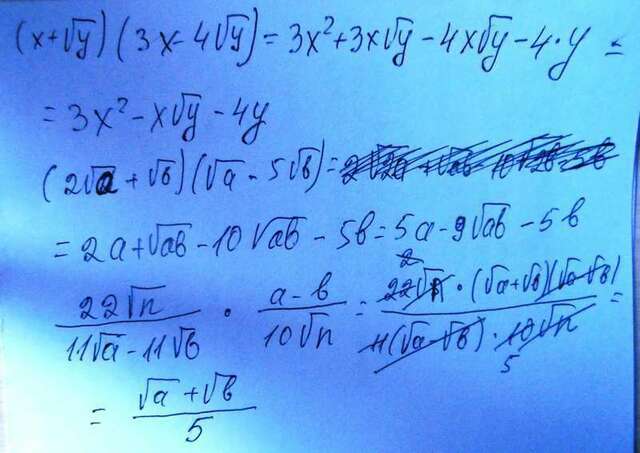 (x+√y)(3x-4√y)=3x²+3x√y-4x√y-4·y=
=3x²-x√y-4y
(2√a+√b)(√a-5√b)=
=2a+√ab-10√ab-5b=5a-9√ab-5b
22√n/(11√a-11√b) · (a-b)/(10√n) = 2 22√n·(√a+√b)(√a-√b)/(11(√a-√b)·10√n 5) =
= (√a+√b)/5